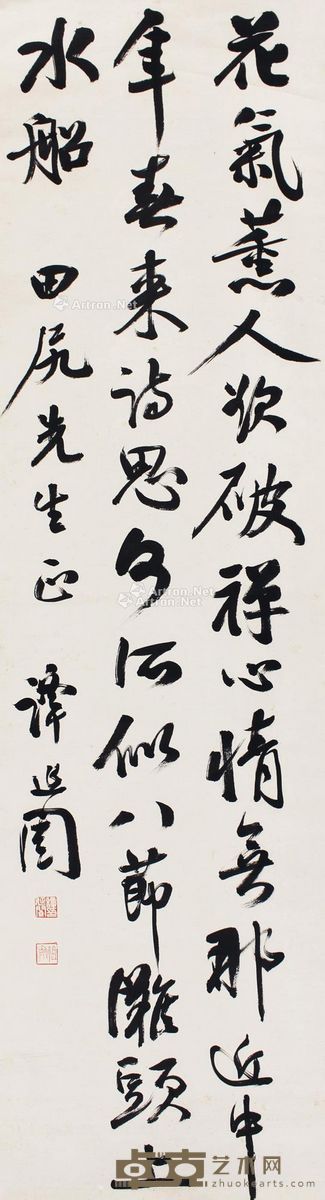 花氣薰人欲破禪心情無那近中
年春来詩思何似八節灘頭上
水船 田尻先生正 譚延闓
Artron.Net
Artron.Net
Artron.Net
卓克艺术网
zhuokearts.com